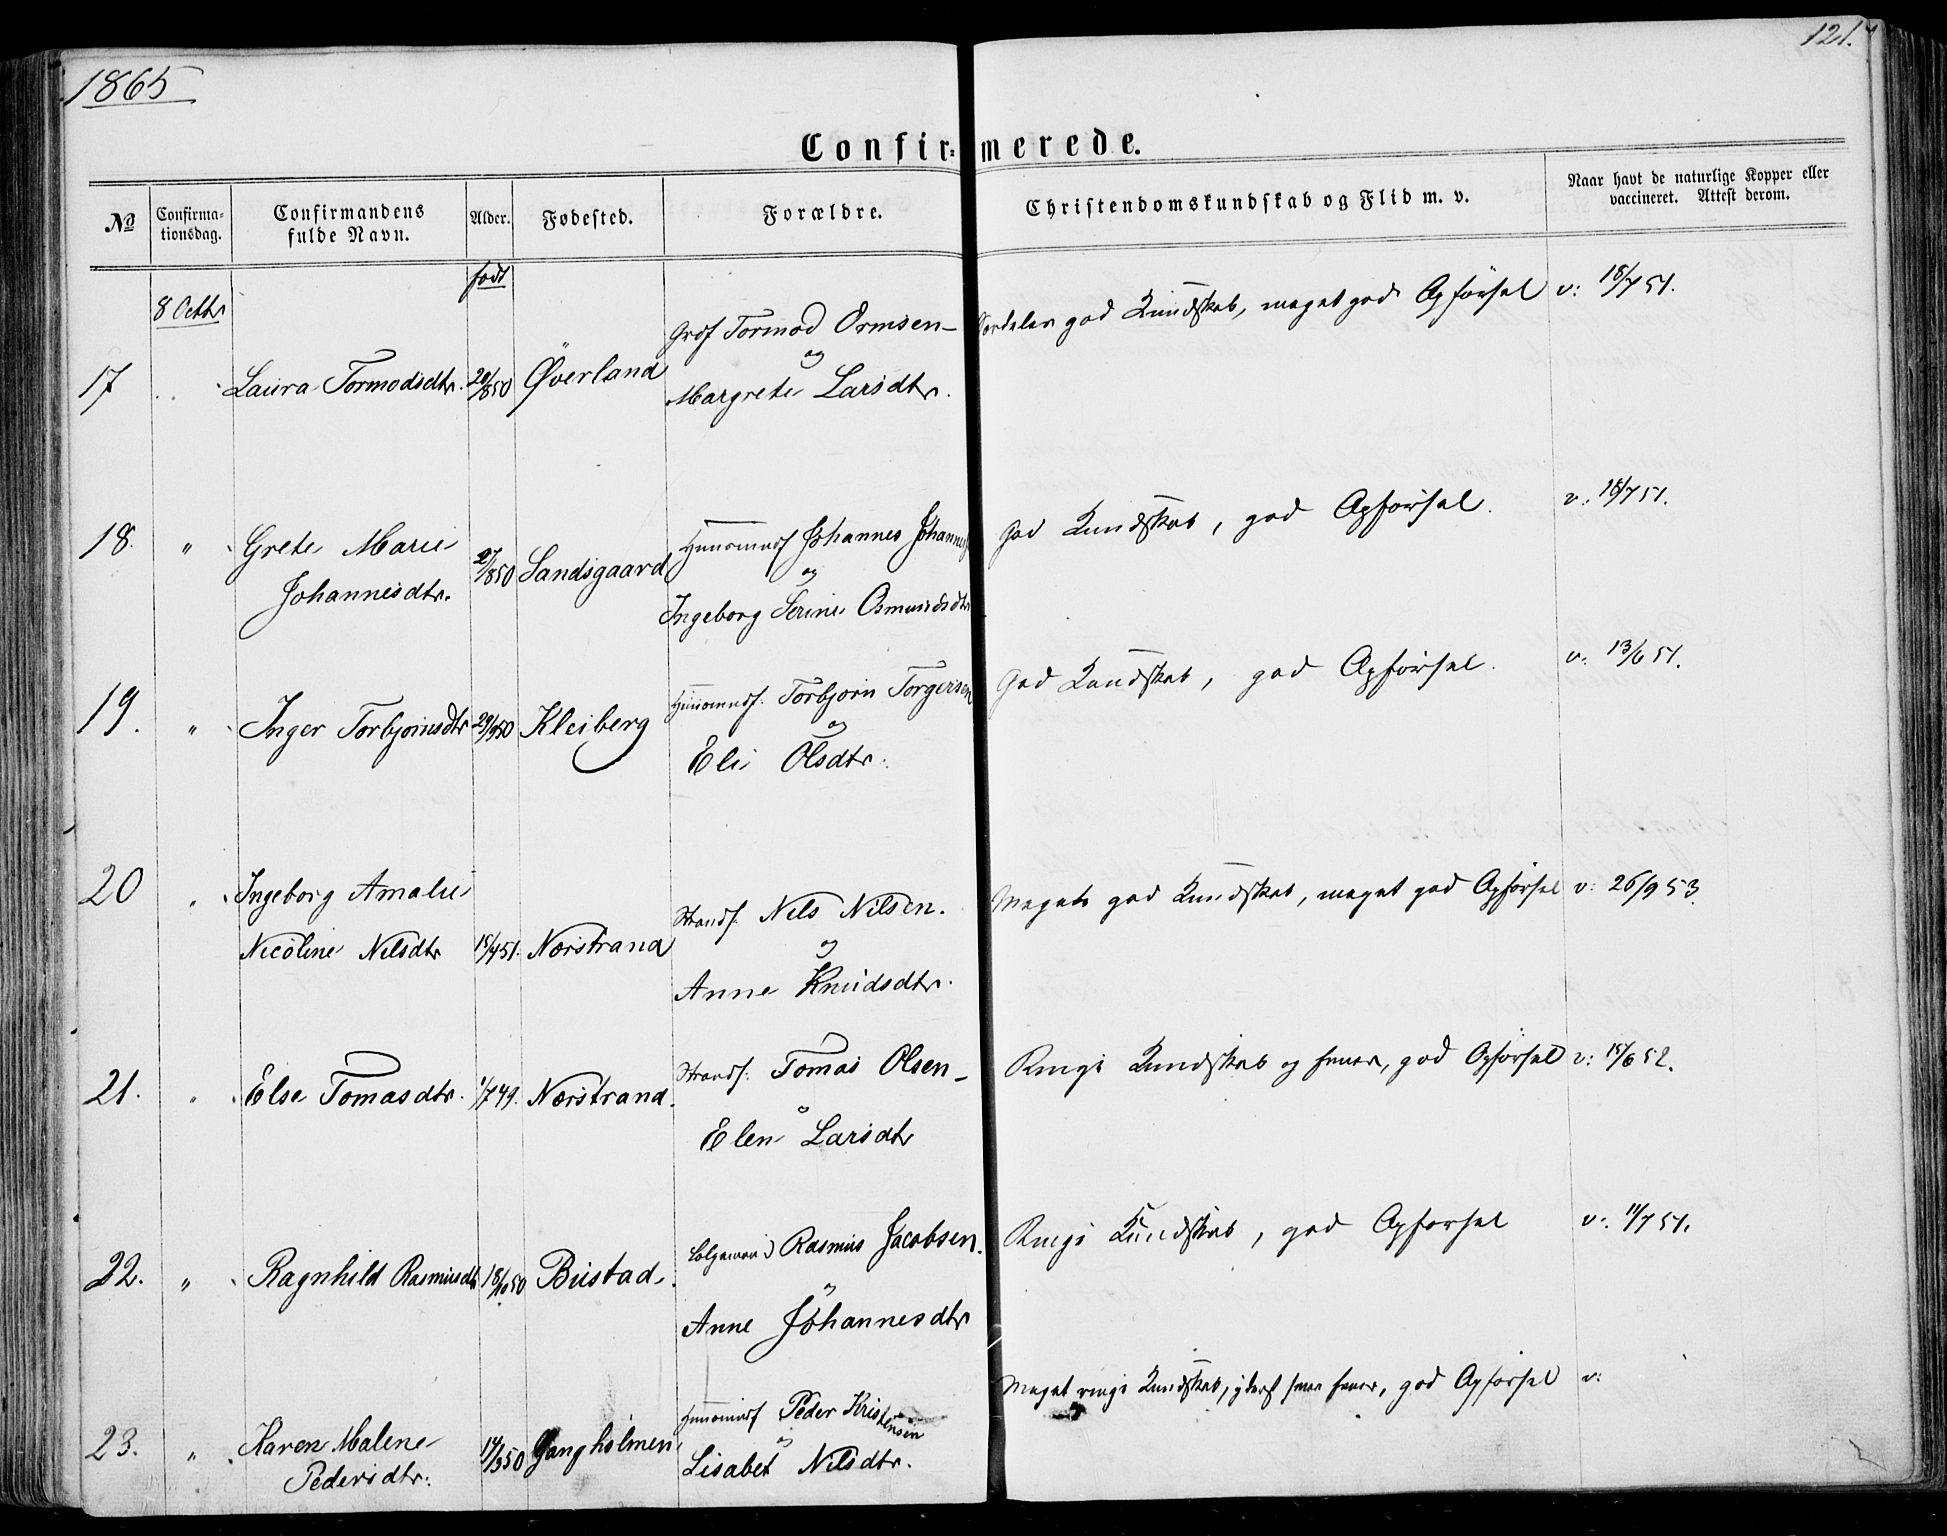 1865
121.
Confir=merede.
No
Confirma-
tionsdag.
Confirmandens
fulde Navn.
Alder.
Fødested.
Forældre.
Christendomskundskab og Flid m. v.
Naar havt de naturlige Kopper eller
vaccineret. Attest derom.
født
8 Octbr
Grdf Tormod Ormsen - god Kundskab, meget god Opførsel v: 18/7 51.
og
17 Laura Tormodsdtr. 20/8 50 Øverland Margrete Larsdtr.
18. " Grete Marie Johannes God Kundskab, god Opførsel. v: 18/7 51.
Johannesdtr. /8 50 Sandsgaard og
Ingeborg Serine Osmundsdtr
19. " Inger Torbjørnsdtr 29/9 50 Kleiberg Torbjørn Torgersen God Kundskab, god Opførsel. v: 13/6 51.
og
Eli Olsdtr.
20 " Ingeborg Amalie Strandf. Nils Nilsen. Meget god Kundskab, meget god Opførsel v: 26/9 53.
Nicoline Nilsdtr 15/4 51. Nærstrand og
Anne Knudsdtr.
21. " Else Tomasdtr. 1/7 49. Nærstrand. Strandf. Tomas Olsen - Ringe Kundskab og Evner, god Opførsel v: 15/6 52.
o
Elen Larsdtr
22. " Ragnhild Rasmusdtr 18/10 50 Bustad. Rasmus Jacobsen. Ringe Kundskab, god Opførsel v: 11/7 51.
o
Anne Johannesdtr
23. " Karen Malene Peder Kristensen Meget ringe Kundskab, yderst smaa Evner, god Opførsel v:
Pedersdtr. 14/3 50 Gangholmen o
Lisabet Nilsdtr.